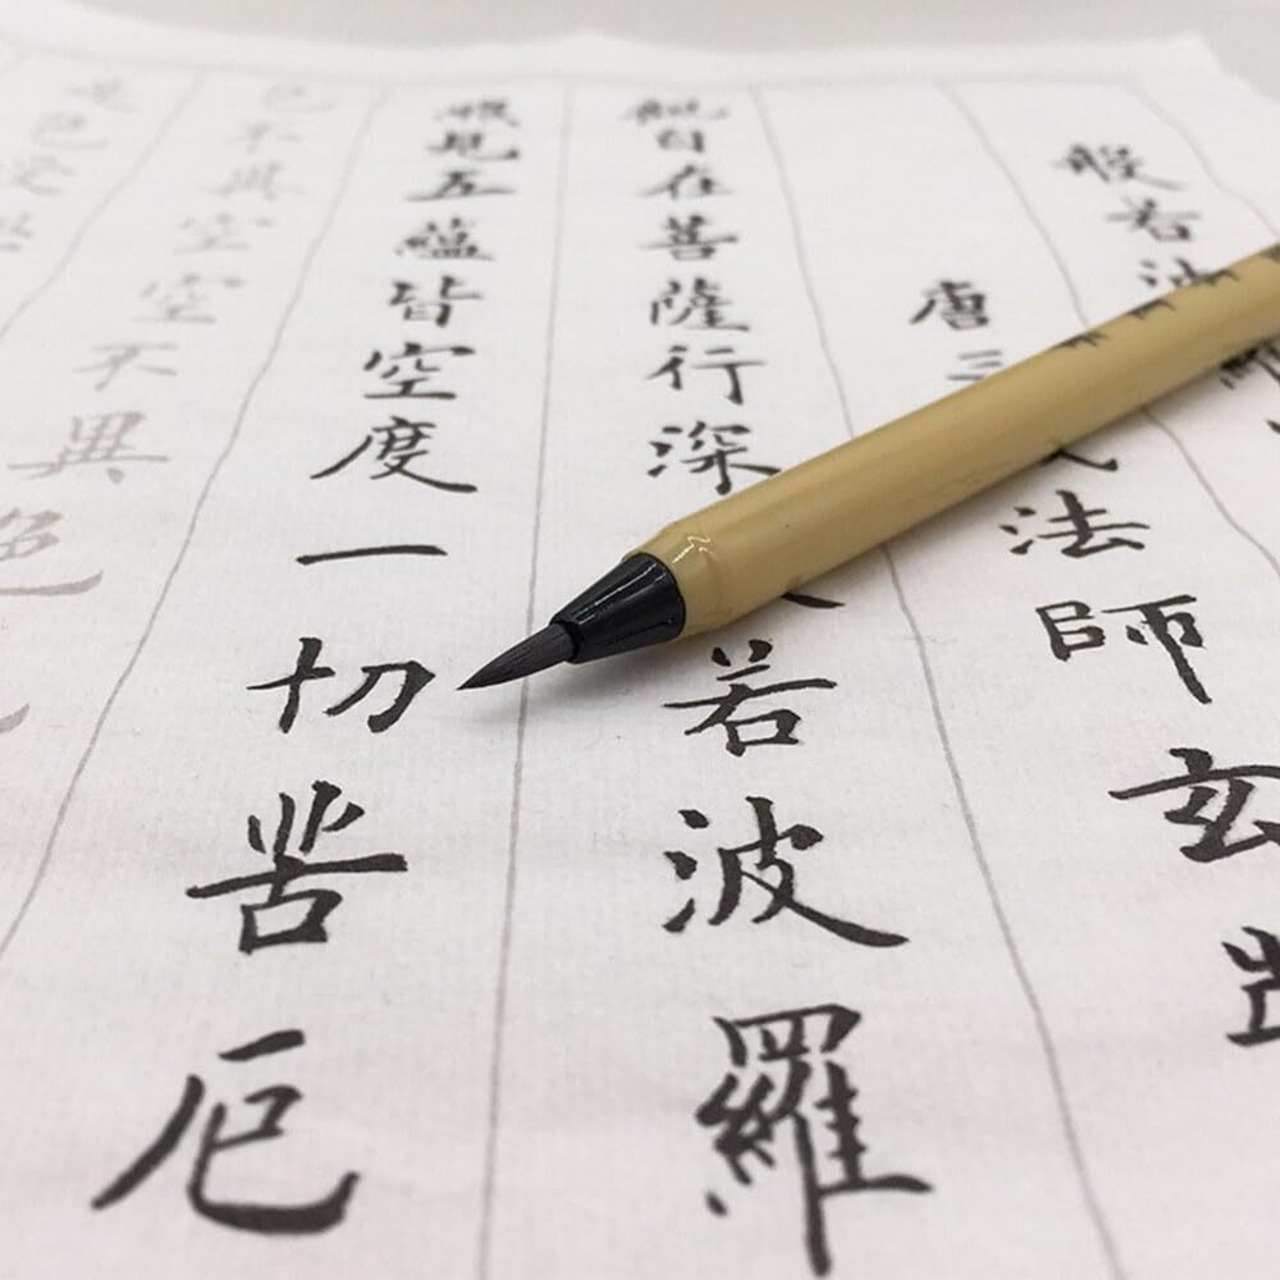 般若波羅
唐三法師玄奘
觀自在菩薩行深若波羅
照見五蘊皆空度一切苦厄
色不異空空不異色
是色受想